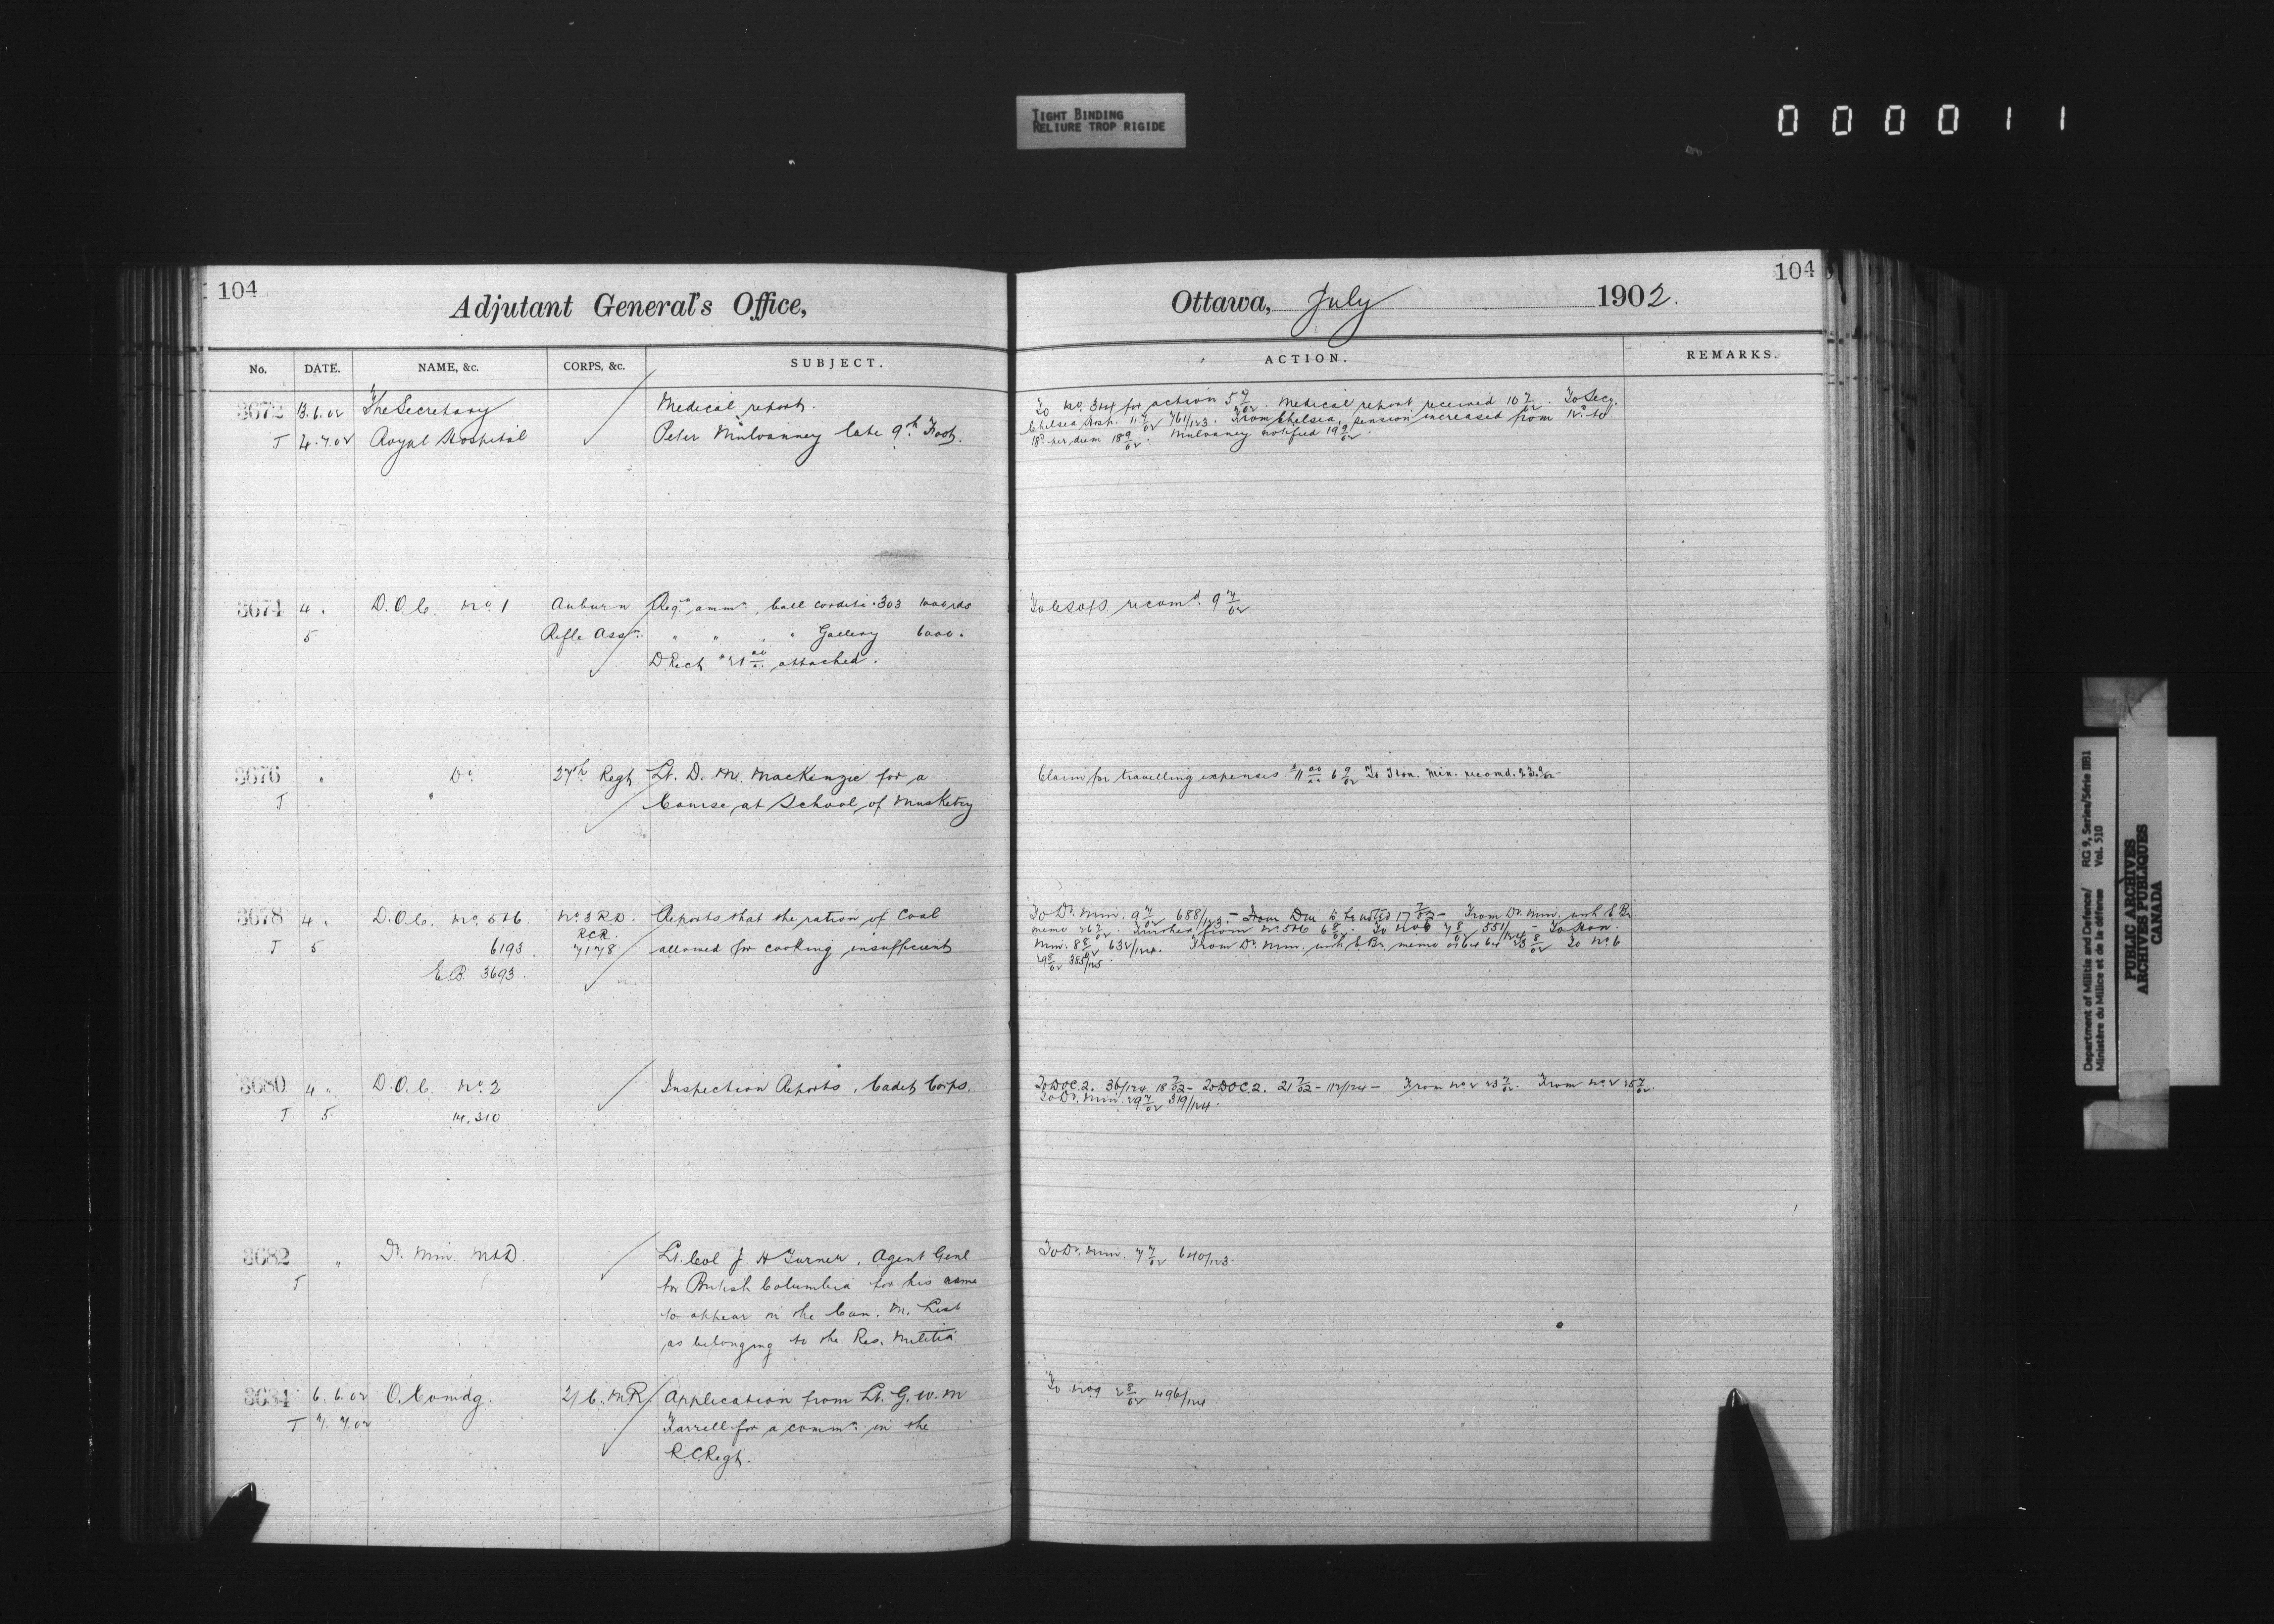 TIGHT BINDING
RELIURE TROP RIGIDE
000011
104
Adjutant General's Office,
No. DATE. NAME, &c. CORPS, &c. SUBJECT.
3672 13.6.02 The Secretary Medical report.
T 4.7.02 Royal Hospital Peter Mulvanney late 9th Foot.
3674 4 " D.O.C. No. 1 Auburn Reqn. ammn., ball cordite .303 1000 rds
5 Rifle Assn. " " " " Gallery 6000 "
D Rect attached.
3676 " Do. 27th Regt Lt. D. M. MacKenzie for a
T " Course at School of Musketry
3678 4 " D.O.C. No. 5&6 No. 3 R.D. Reports that the ration of coal
RCR.
T 5 6193 7178 allowed for cooking insufficient
E.B. 3693.
3680 4 " D.O.C. No. 2 Inspection Reports, Cadet Corps.
T 5 14,310
3682 " Dr. Min. M&D. Lt. Col J. H Turner, Agent Genl
T for British Columbia for his name
to appear in the Can. M. List
as belonging to the Res. Militia
3684 6.6.02 O. Comdg. 2/C.M.R. Application from Lt. G. W. M
T 7.7.02 Farrell for a commn. in the
R.C.Regt.
104
Ottawa, July 1902.
ACTION. REMARKS.
To No. 3&4 for action 5 7/02. Medical report received 10 7/02. To Secy.
Chelsea Hosp. 11 7/02 761/123. From Chelsea, pension increased from 12d. to
18d. per diem 18 9/02. Mulvanney notified 19 9/02.
recomd. 9 7/02
Claim for travelling expenses 6 9/02 To Hon. Min. recomd.
To Dr. Min. 9 7/02 688/123. – From Dm to be noted 17 7/02 – From Dr. Min. with E Br
memo 26 7/02. from No. 5&6 6 8/02. To No 6 7 8/02 551/124 – To Hon.
Min. 8 8/02, 632/124. From Dr. Min. with E.Br. memo 25 8/02 To No. 6
29 8/02 385/125.
To DOC 2. 36/124 18 7/02 – To DOC 2. 21 7/02 – 112/124 – From No. 2 23 7/02. From No. 2 25 7/02.
To Dr. Min. 29 7/02 319/124.
To Dr. Min. 7 7/02 640/123.
To No 9 2 8/02 496/124
Department of Militia and Defence/ RG 9, Series/Série IIB1
Ministère du Milice et de la défense Vol. 510
PUBLIC ARCHIVES
ARCHIVES PUBLIQUES
CANADA